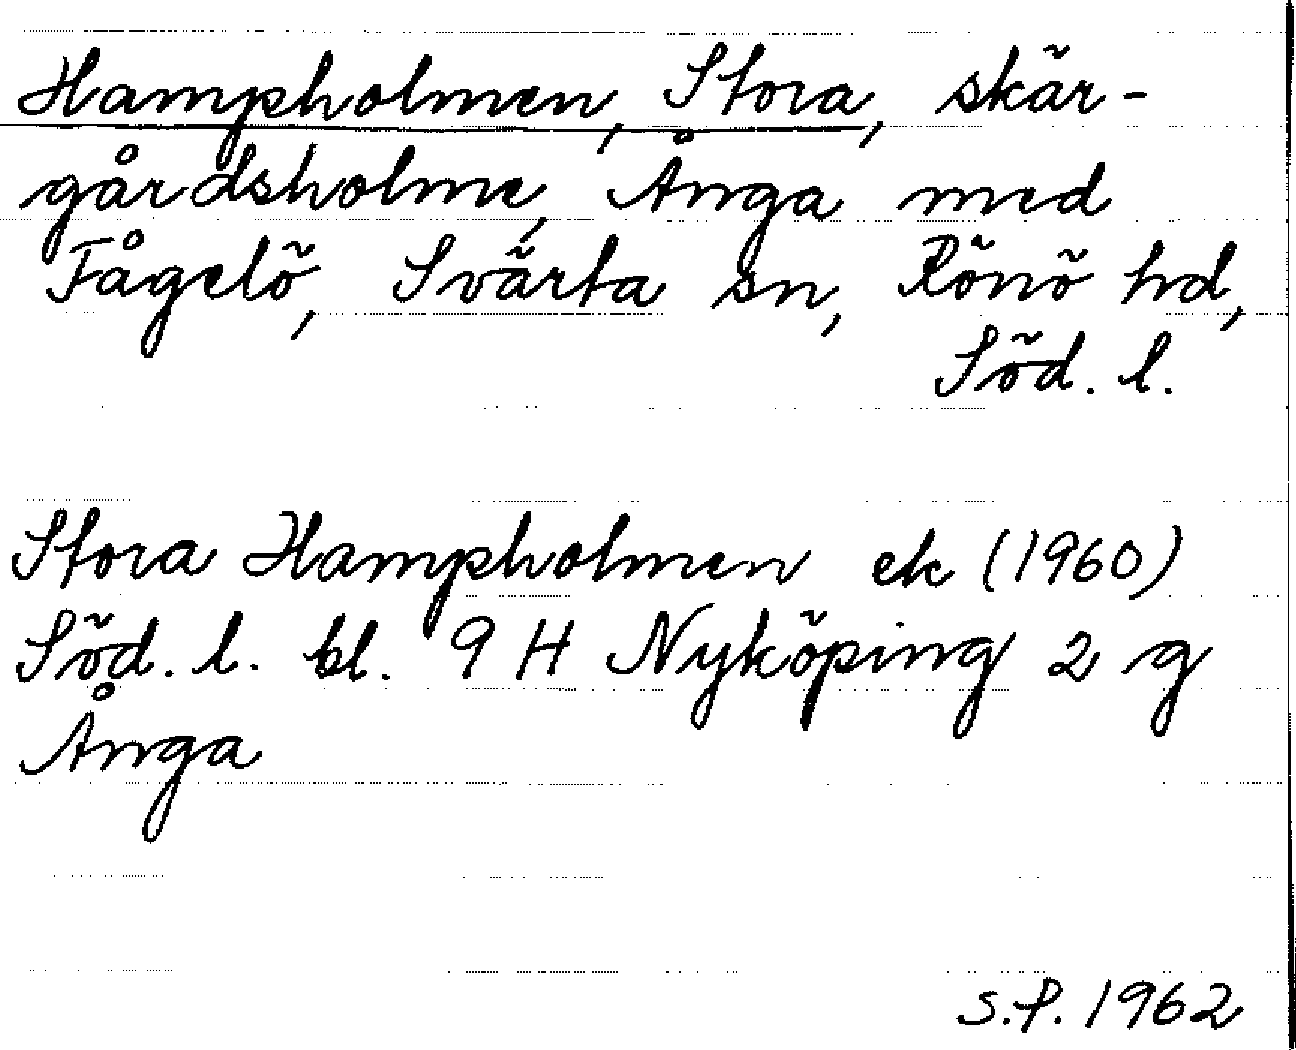 Hampholmen, Stora, skär-
gårdsholme, Ånga med
Fågelö, Svärta sn, Rönö hd,
Söd. l.
Stora Hampholmen ek (1960)
Söd. l. bl. 9 H Nyköping 2 g
Ånga
S.P. 1962